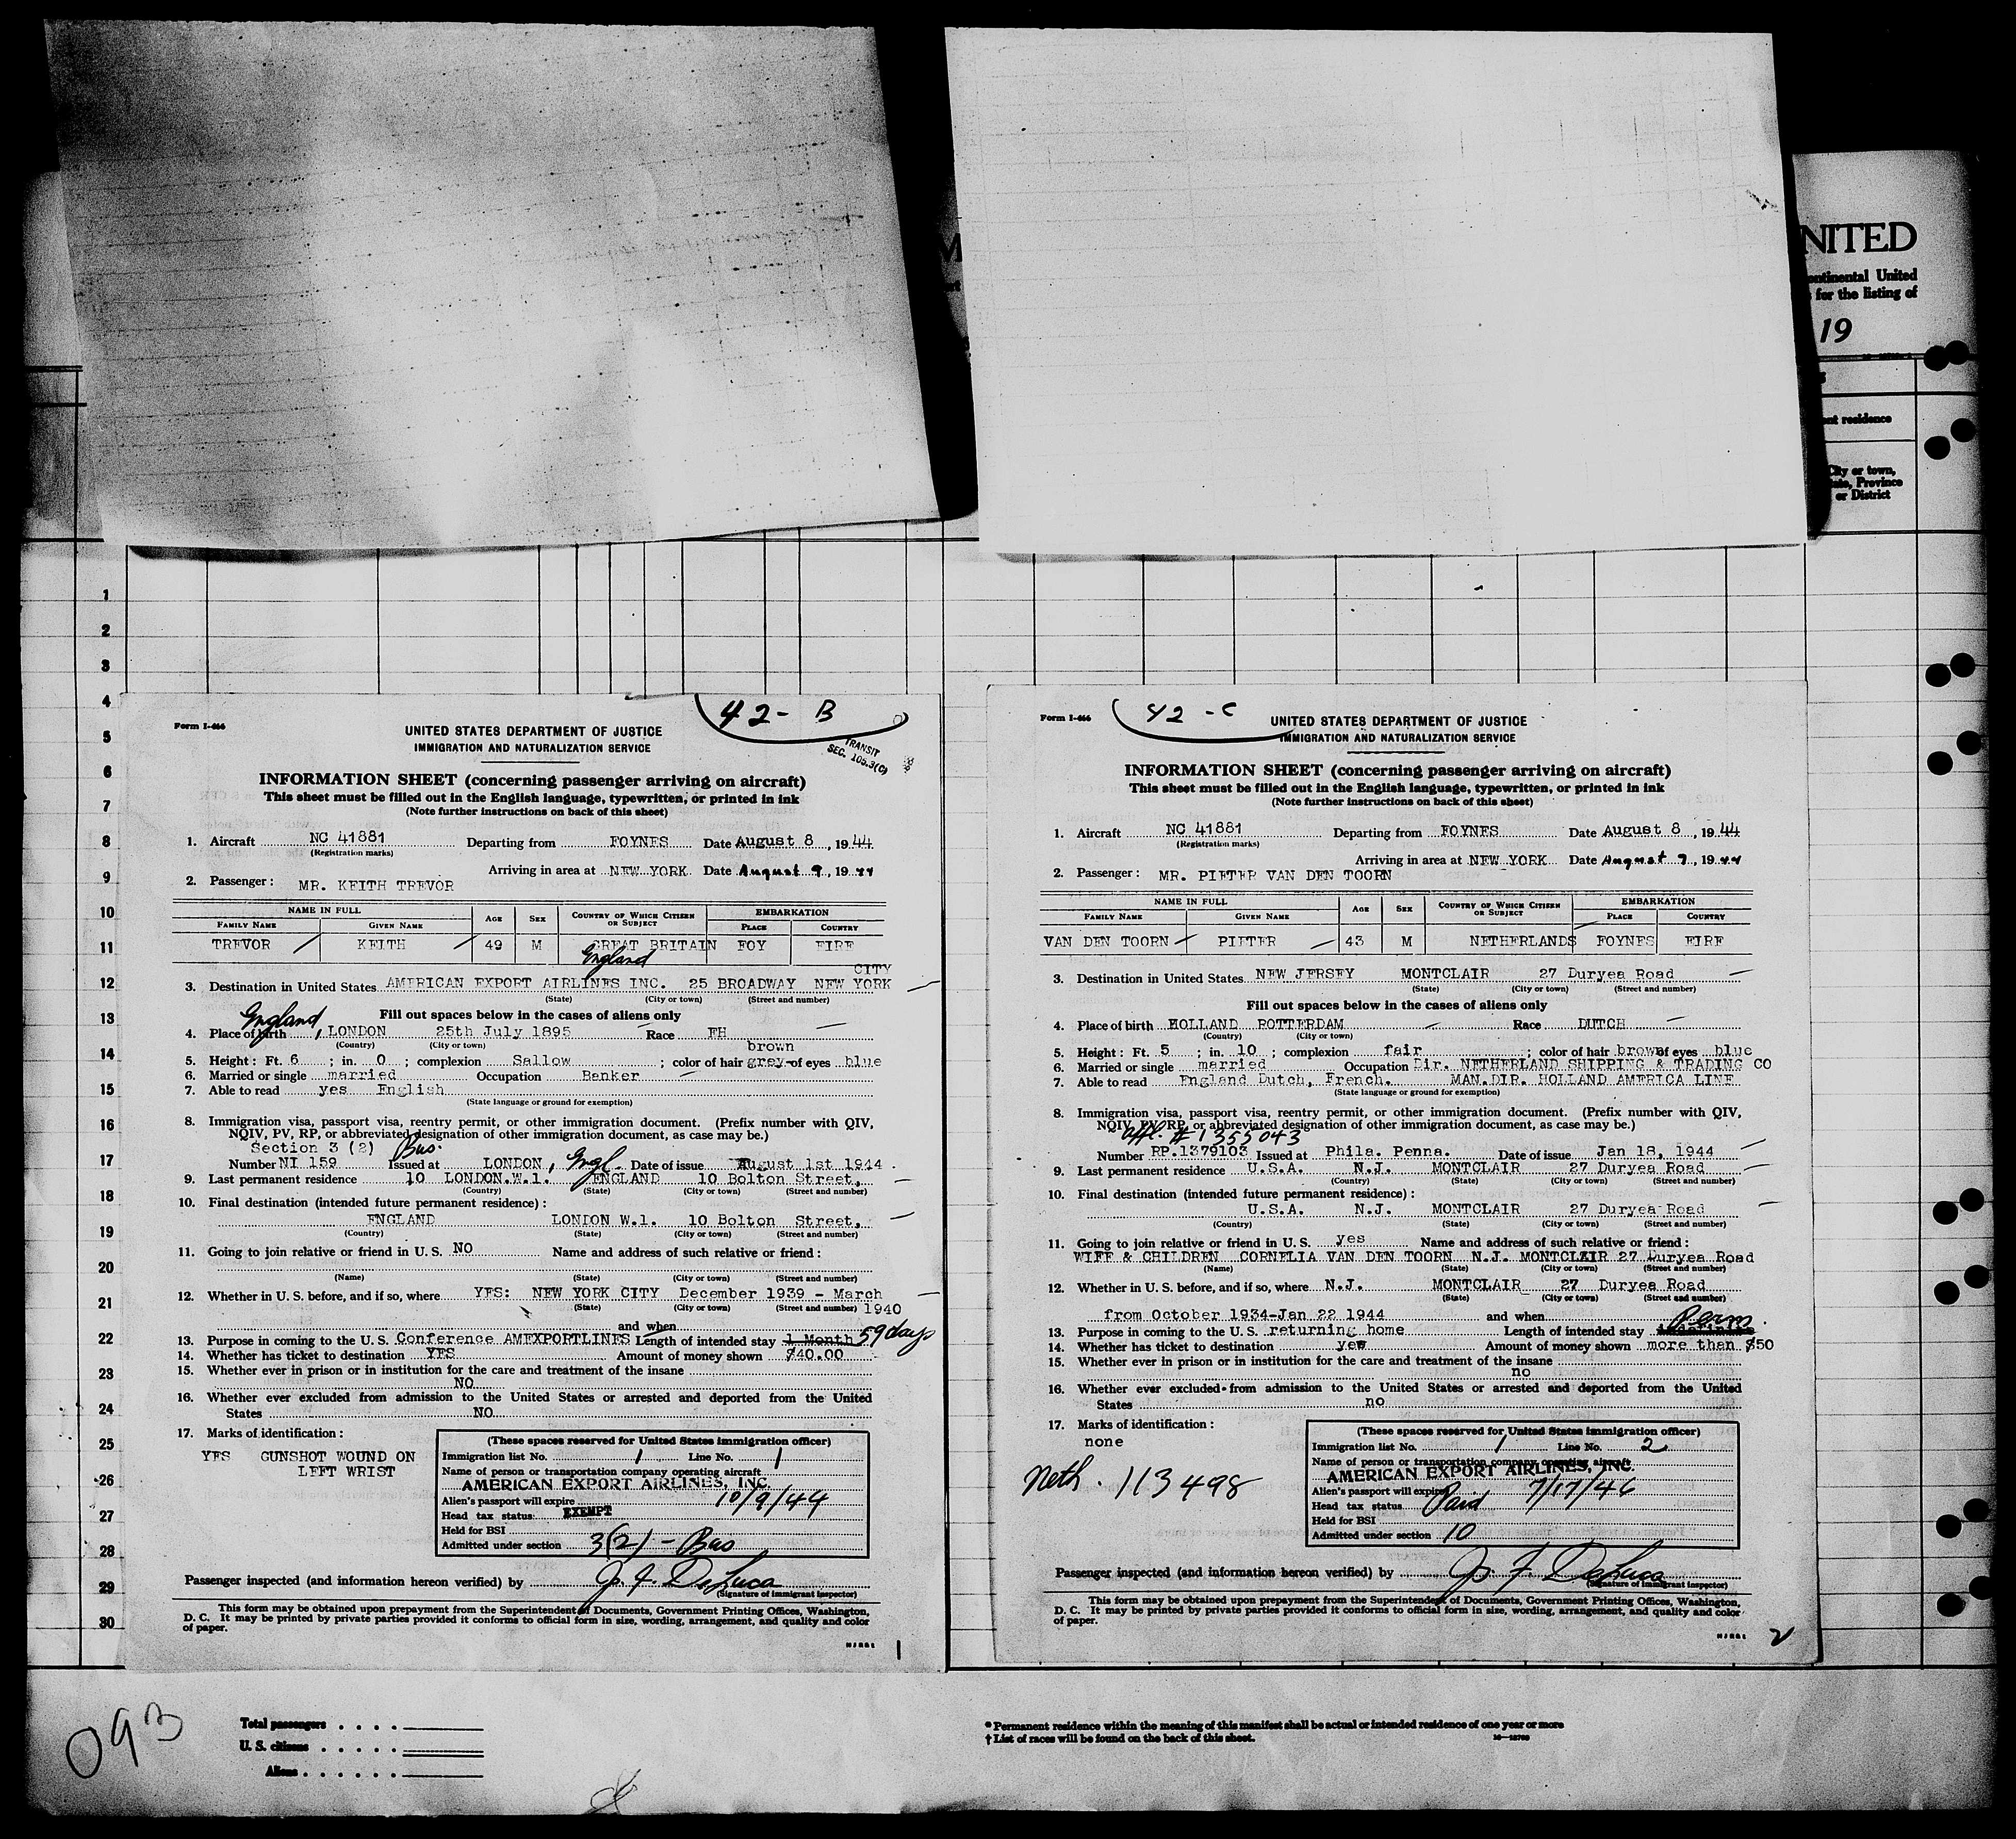 NITED
ontinental United
for the listing of
19
nt residence
City or town,
Province
or District
1
2
3
4
5
6
7
8
9
10
11
12
13
14
15
16
17
18
19
20
21
22
23
24
25
26
27
28
29
30
42- B
Form I-466
UNITED STATES DEPARTMENT OF JUSTICE
IMMIGRATION AND NATURALIZATION SERVICE
TRANSIT
SEC. 105.3(C)
INFORMATION SHEET (concerning passenger arriving on aircraft)
This sheet must be filled out in the English language, typewritten, or printed in ink
(Note further instructions on back of this sheet)
1. Aircraft NC 41881 Departing from FOYNES Date August 8, 1944
(Registration marks)
Arriving in area at NEW YORK Date August 9, 1944
2. Passenger: MR. KEITH TREVOR
NAME IN FULL AGE SEX COUNTRY OF WHICH CITIZEN OR SUBJECT EMBARKATION
FAMILY NAME GIVEN NAME PLACE COUNTRY
TREVOR KEITH 49 M GREAT BRITAIN FOY EIRE
England
CITY
3. Destination in United States AMERICAN EXPORT AIRLINES INC. 25 BROADWAY NEW YORK
(State) (City or town) (Street and number)
Fill out spaces below in the cases of aliens only
England,
4. Place of birth LONDON 25th July 1895 Race EH
(Country) (City or town)
brown
5. Height: Ft. 6; in. 0; complexion Sallow; color of hair grey of eyes blue
6. Married or single married Occupation Banker
7. Able to read yes English
(State language or ground for exemption)
8. Immigration visa, passport visa, reentry permit, or other immigration document. (Prefix number with QIV,
NQIV, PV, RP, or abbreviated designation of other immigration document, as case may be.)
Section 3 (2) Bus.
Number NI 159 Issued at LONDON, Engl. Date of issue August 1st 1944
9. Last permanent residence 10 LONDON.W.1. ENGLAND 10 Bolton Street,
(Country) (State) (City or town) (Street and number)
10. Final destination (intended future permanent residence):
ENGLAND LONDON W.1. 10 Bolton Street,
(Country) (State) (City or town) (Street and number)
11. Going to join relative or friend in U. S. NO Name and address of such relative or friend:
(Name) (State) (City or town) (Street and number)
12. Whether in U. S. before, and if so, where YES: NEW YORK CITY December 1939 - March
(State) (City or town) (Street and number) 1940
and when
13. Purpose in coming to the U. S. Conference AMEXPORTLINES Length of intended stay 1 Month 59 days
14. Whether has ticket to destination YES Amount of money shown $40.00
15. Whether ever in prison or in institution for the care and treatment of the insane
NO
16. Whether ever excluded from admission to the United States or arrested and deported from the United
States NO
17. Marks of identification:
YES GUNSHOT WOUND ON
LEFT WRIST
(These spaces reserved for United States immigration officer)
Immigration list No. 1 Line No. 1
Name of person or transportation company operating aircraft
AMERICAN EXPORT AIRLINES, INC.
Alien's passport will expire 10/9/44
Head tax status: EXEMPT
Held for BSI
Admitted under section 3(2) - Bus
Passenger inspected (and information hereon verified) by J. F. DeLuca
(Signature of immigrant inspector)
This form may be obtained upon prepayment from the Superintendent of Documents, Government Printing Offices, Washington,
D. C. It may be printed by private parties provided it conforms to official form in size, wording, arrangement, and quality and color
of paper.
1
42 -C
Form I-466
UNITED STATES DEPARTMENT OF JUSTICE
IMMIGRATION AND NATURALIZATION SERVICE
INFORMATION SHEET (concerning passenger arriving on aircraft)
This sheet must be filled out in the English language, typewritten, or printed in ink
(Note further instructions on back of this sheet)
1. Aircraft NC 41881 Departing from FOYNES Date August 8, 1944
(Registration marks)
Arriving in area at NEW YORK Date August 9, 1944
2. Passenger: MR. PIETER VAN DEN TOORN
NAME IN FULL AGE SEX COUNTRY OF WHICH CITIZEN OR SUBJECT EMBARKATION
FAMILY NAME GIVEN NAME PLACE COUNTRY
VAN DEN TOORN PIETER 43 M NETHERLANDS FOYNES EIRE
3. Destination in United States NEW JERSEY MONTCLAIR 27 Duryea Road
(State) (City or town) (Street and number)
Fill out spaces below in the cases of aliens only
4. Place of birth HOLLAND ROTTERDAM Race DUTCH
(Country) (City or town)
5. Height: Ft. 5; in. 10; complexion fair; color of hair brown of eyes blue
6. Married or single married Occupation Dir. NETHERLAND SHIPPING & TRADING CO
7. Able to read England Dutch, French. MAN.DIR. HOLLAND AMERICA LINE
(State language or ground for exemption)
8. Immigration visa, passport visa, reentry permit, or other immigration document. (Prefix number with QIV,
NQIV, PV, RP, or abbreviated designation of other immigration document, as case may be.)
Affl. # 1355043
Number RP.1379103 Issued at Phila. Penna. Date of issue Jan 18, 1944
9. Last permanent residence U.S.A. N.J. MONTCLAIR 27 Duryea Road
(Country) (State) (City or town) (Street and number)
10. Final destination (intended future permanent residence):
U.S.A. N.J. MONTCLAIR 27 Duryea Road
(Country) (State) (City or town) (Street and number)
11. Going to join relative or friend in U. S. yes Name and address of such relative or friend:
WIFE & CHILDREN CORNELIA VAN DEN TOORN N.J. MONTCLAIR 27 Duryea Road
(Name) (State) (City or town) (Street and number)
12. Whether in U. S. before, and if so, where N.J. MONTCLAIR 27 Duryea Road
(State) (City or town) (Street and number)
from October 1934-Jan 22 1944 and when
Perm.
13. Purpose in coming to the U. S. returning home Length of intended stay
14. Whether has ticket to destination yes Amount of money shown more than $50
15. Whether ever in prison or in institution for the care and treatment of the insane
no
16. Whether ever excluded from admission to the United States or arrested and deported from the United
States no
17. Marks of identification:
none
Neth. 113498
(These spaces reserved for United States immigration officer)
Immigration list No. 1 Line No. 2
Name of person or transportation company operating aircraft
AMERICAN EXPORT AIRLINES, INC.
Alien's passport will expire 7/17/46
Head tax status Paid
Held for BSI
Admitted under section 10
Passenger inspected (and information hereon verified) by J. F. DeLuca
(Signature of immigrant inspector)
This form may be obtained upon prepayment from the Superintendent of Documents, Government Printing Offices, Washington,
D. C. It may be printed by private parties provided it conforms to official form in size, wording, arrangement, and quality and color
of paper.
2
093
Total passengers
U. S. citizens
Aliens
* Permanent residence within the meaning of this manifest shall be actual or intended residence of one year or more
† List of races will be found on the back of this sheet.